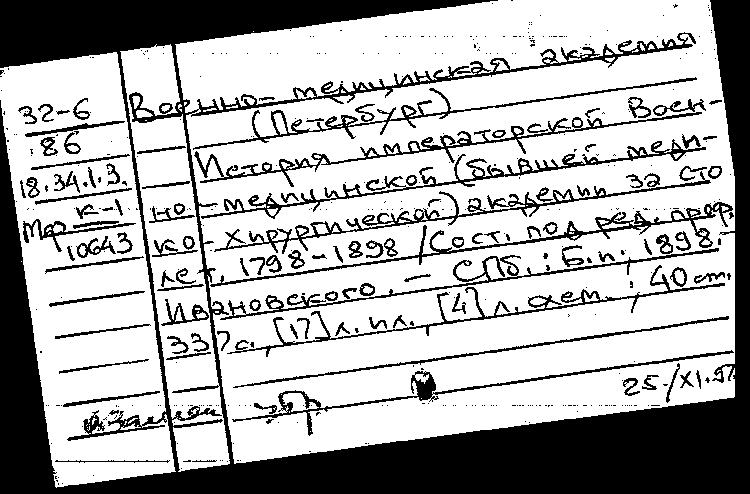 32-6 Военно-медицинская академия
86 (Петербург)
18.34.1.3. История императорской Воен-
Мар К-1 но-медицинской (бывшей меди-
10643 ко-хирургической) академии за сто
лет, 1798-1898 / Сост. под ред. проф.
Ивановского. — СПб.: Б.и., 1898.-
337с., [17] л. ил., [4] л. схем.; 40 см.
25/XI.